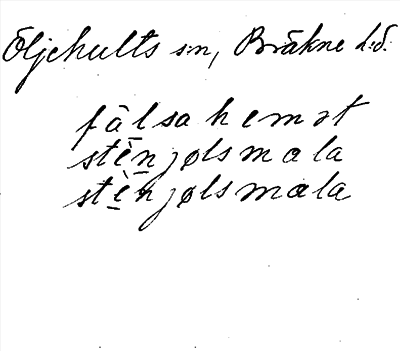 Öljehults sn, Bräkne hd.
fàlsahemət
stènjølsmala
stènjølsmala